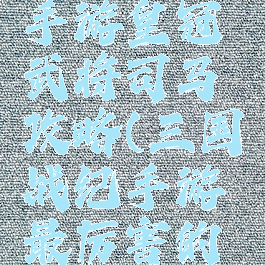 手游皇冠
武将司马
攻略(三国
战纪手游
最厉害的